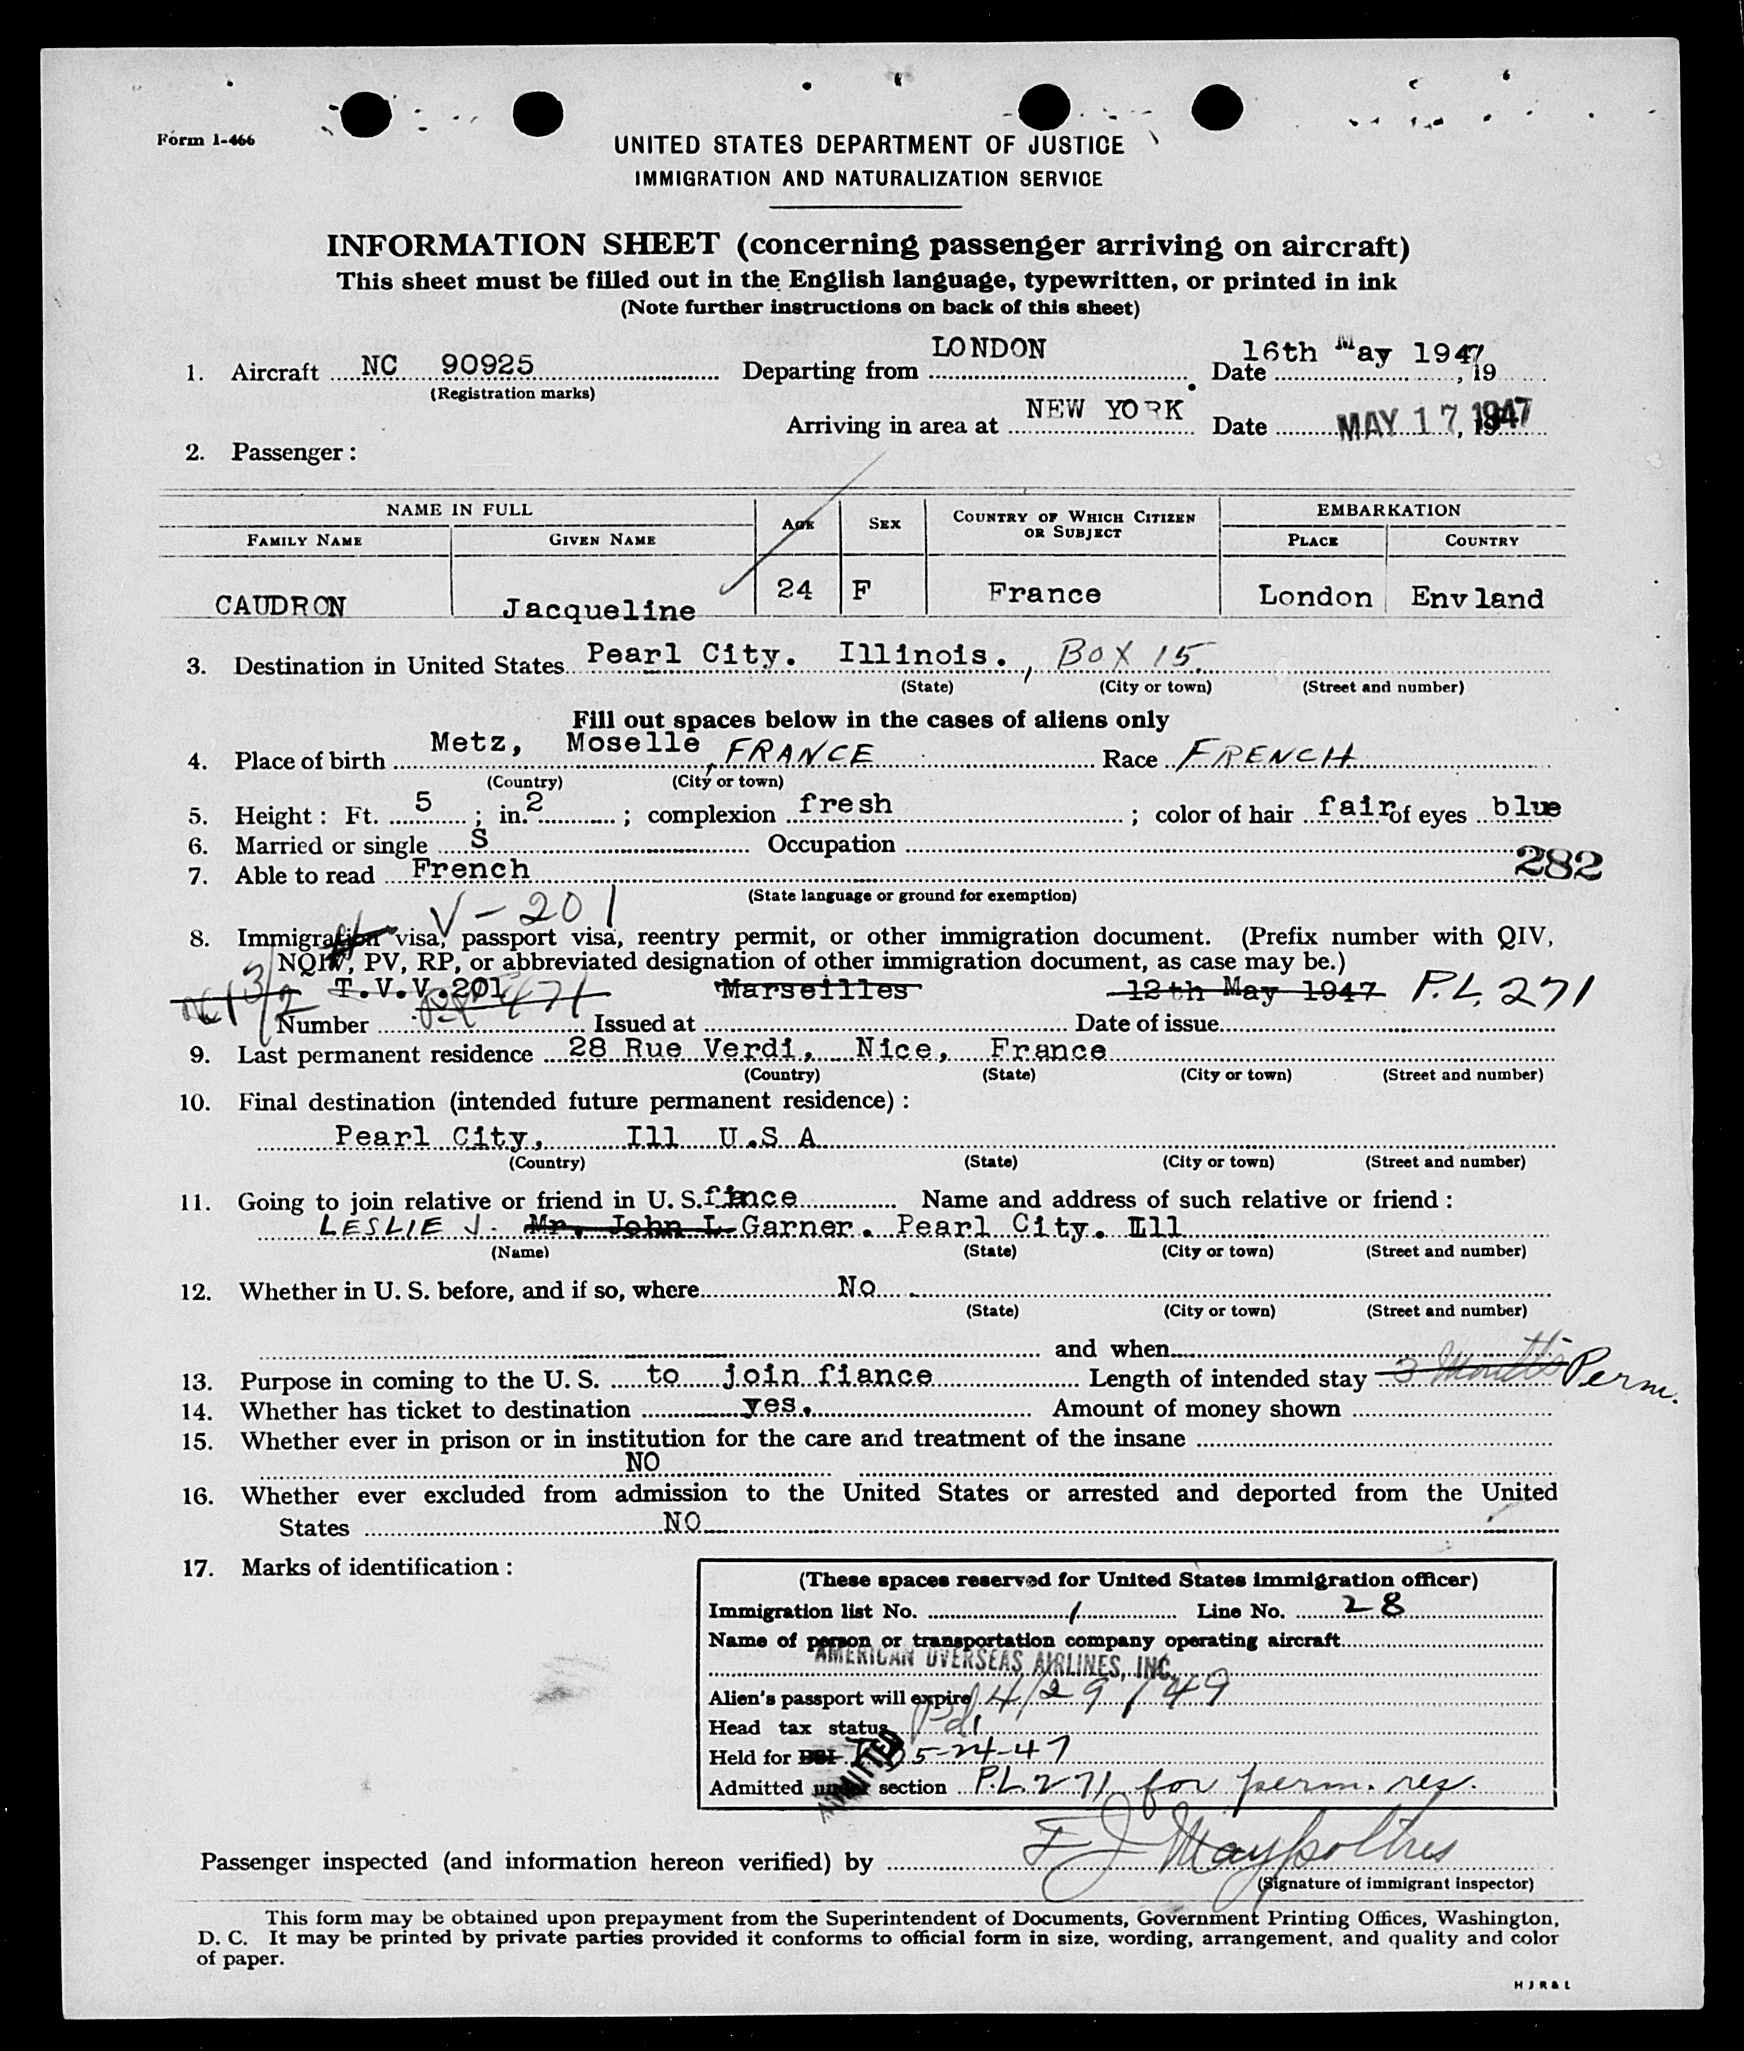 Form I-466
UNITED STATES DEPARTMENT OF JUSTICE
IMMIGRATION AND NATURALIZATION SERVICE
INFORMATION SHEET (concerning passenger arriving on aircraft)
This sheet must be filled out in the English language, typewritten, or printed in ink
(Note further instructions on back of this sheet)
1. Aircraft NC 90925 Departing from LONDON Date 16th May 1947, 19
(Registration marks)
Arriving in area at NEW YORK Date MAY 17, 1947
2. Passenger:
NAME IN FULL AGE SEX COUNTRY OF WHICH CITIZEN OR SUBJECT EMBARKATION
FAMILY NAME GIVEN NAME PLACE COUNTRY
CAUDRON Jacqueline 24 F France London Envland
3. Destination in United States Pearl City. Illinois., BOX 15.
(State) (City or town) (Street and number)
Fill out spaces below in the cases of aliens only
4. Place of birth Metz, Moselle, FRANCE Race FRENCH
(Country) (City or town)
5. Height: Ft. 5; in. 2; complexion fresh; color of hair fair of eyes blue
6. Married or single S Occupation
282
7. Able to read French
(State language or ground for exemption)
V-201
8. Immigration visa, passport visa, reentry permit, or other immigration document. (Prefix number with QIV,
NQIV, PV, RP, or abbreviated designation of other immigration document, as case may be.)
T.V.V.201 Marseilles 12th May 1947 P.L. 271
Number Issued at Date of issue
9. Last permanent residence 28 Rue Verdi, Nice, France
(Country) (State) (City or town) (Street and number)
10. Final destination (intended future permanent residence):
Pearl City, Ill U.S A
(Country) (State) (City or town) (Street and number)
11. Going to join relative or friend in U. S. Name and address of such relative or friend:
LESLIE J. Mr. John L Garner. Pearl City. Ill
(Name) (State) (City or town) (Street and number)
12. Whether in U. S. before, and if so, where No
(State) (City or town) (Street and number)
and when
13. Purpose in coming to the U. S. to join fiance Length of intended stay 3 Months Perm.
14. Whether has ticket to destination yes. Amount of money shown
15. Whether ever in prison or in institution for the care and treatment of the insane
NO
16. Whether ever excluded from admission to the United States or arrested and deported from the United
States NO
17. Marks of identification:
(These spaces reserved for United States immigration officer)
Immigration list No. 1 Line No. 28
Name of person or transportation company operating aircraft
AMERICAN OVERSEAS AIRLINES, INC.
Alien's passport will expire 4/29/49
Head tax status Pd.
Held for BSI 5-24-47
ADMITTED
Admitted under section P.L. 271 for perm. res.
Passenger inspected (and information hereon verified) by F J
(Signature of immigrant inspector)
This form may be obtained upon prepayment from the Superintendent of Documents, Government Printing Offices, Washington,
D. C. It may be printed by private parties provided it conforms to official form in size, wording, arrangement, and quality and color
of paper.
H J R & L